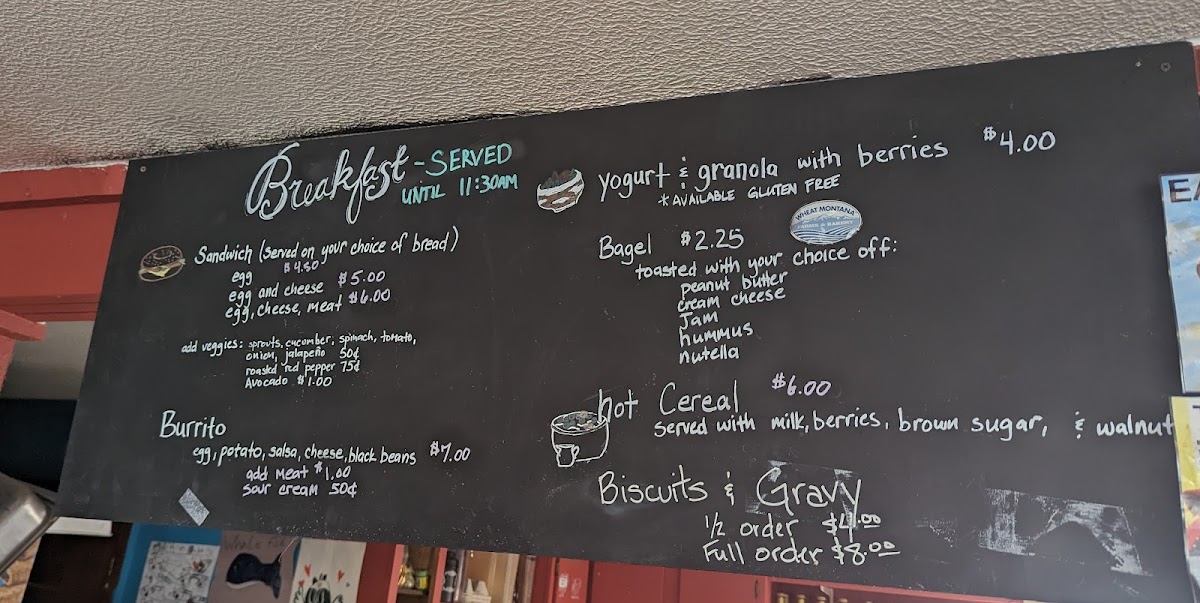 Breakfast - SERVED
UNTIL 11:30AM
Sandwich (served on your choice of bread)
egg $4.50
egg and cheese $5.00
egg, cheese, meat $6.00
add veggies: sprouts, cucumber, spinach, tomato,
onion, jalapeño 50¢
roasted red pepper 75¢
Avocado $1.00
Burrito
egg, potato, salsa, cheese, black beans $7.00
add meat $1.00
sour cream 50¢
yogurt & granola with berries $4.00
*AVAILABLE GLUTEN FREE
WHEAT MONTANA
FARMS & BAKERY
Bagel $2.25
toasted with your choice off:
peanut butter
cream cheese
Jam
hummus
nutella
hot Cereal $6.00
served with milk, berries, brown sugar, & walnut
Biscuits & Gravy
1/2 order $4.00
Full order $8.00
EA